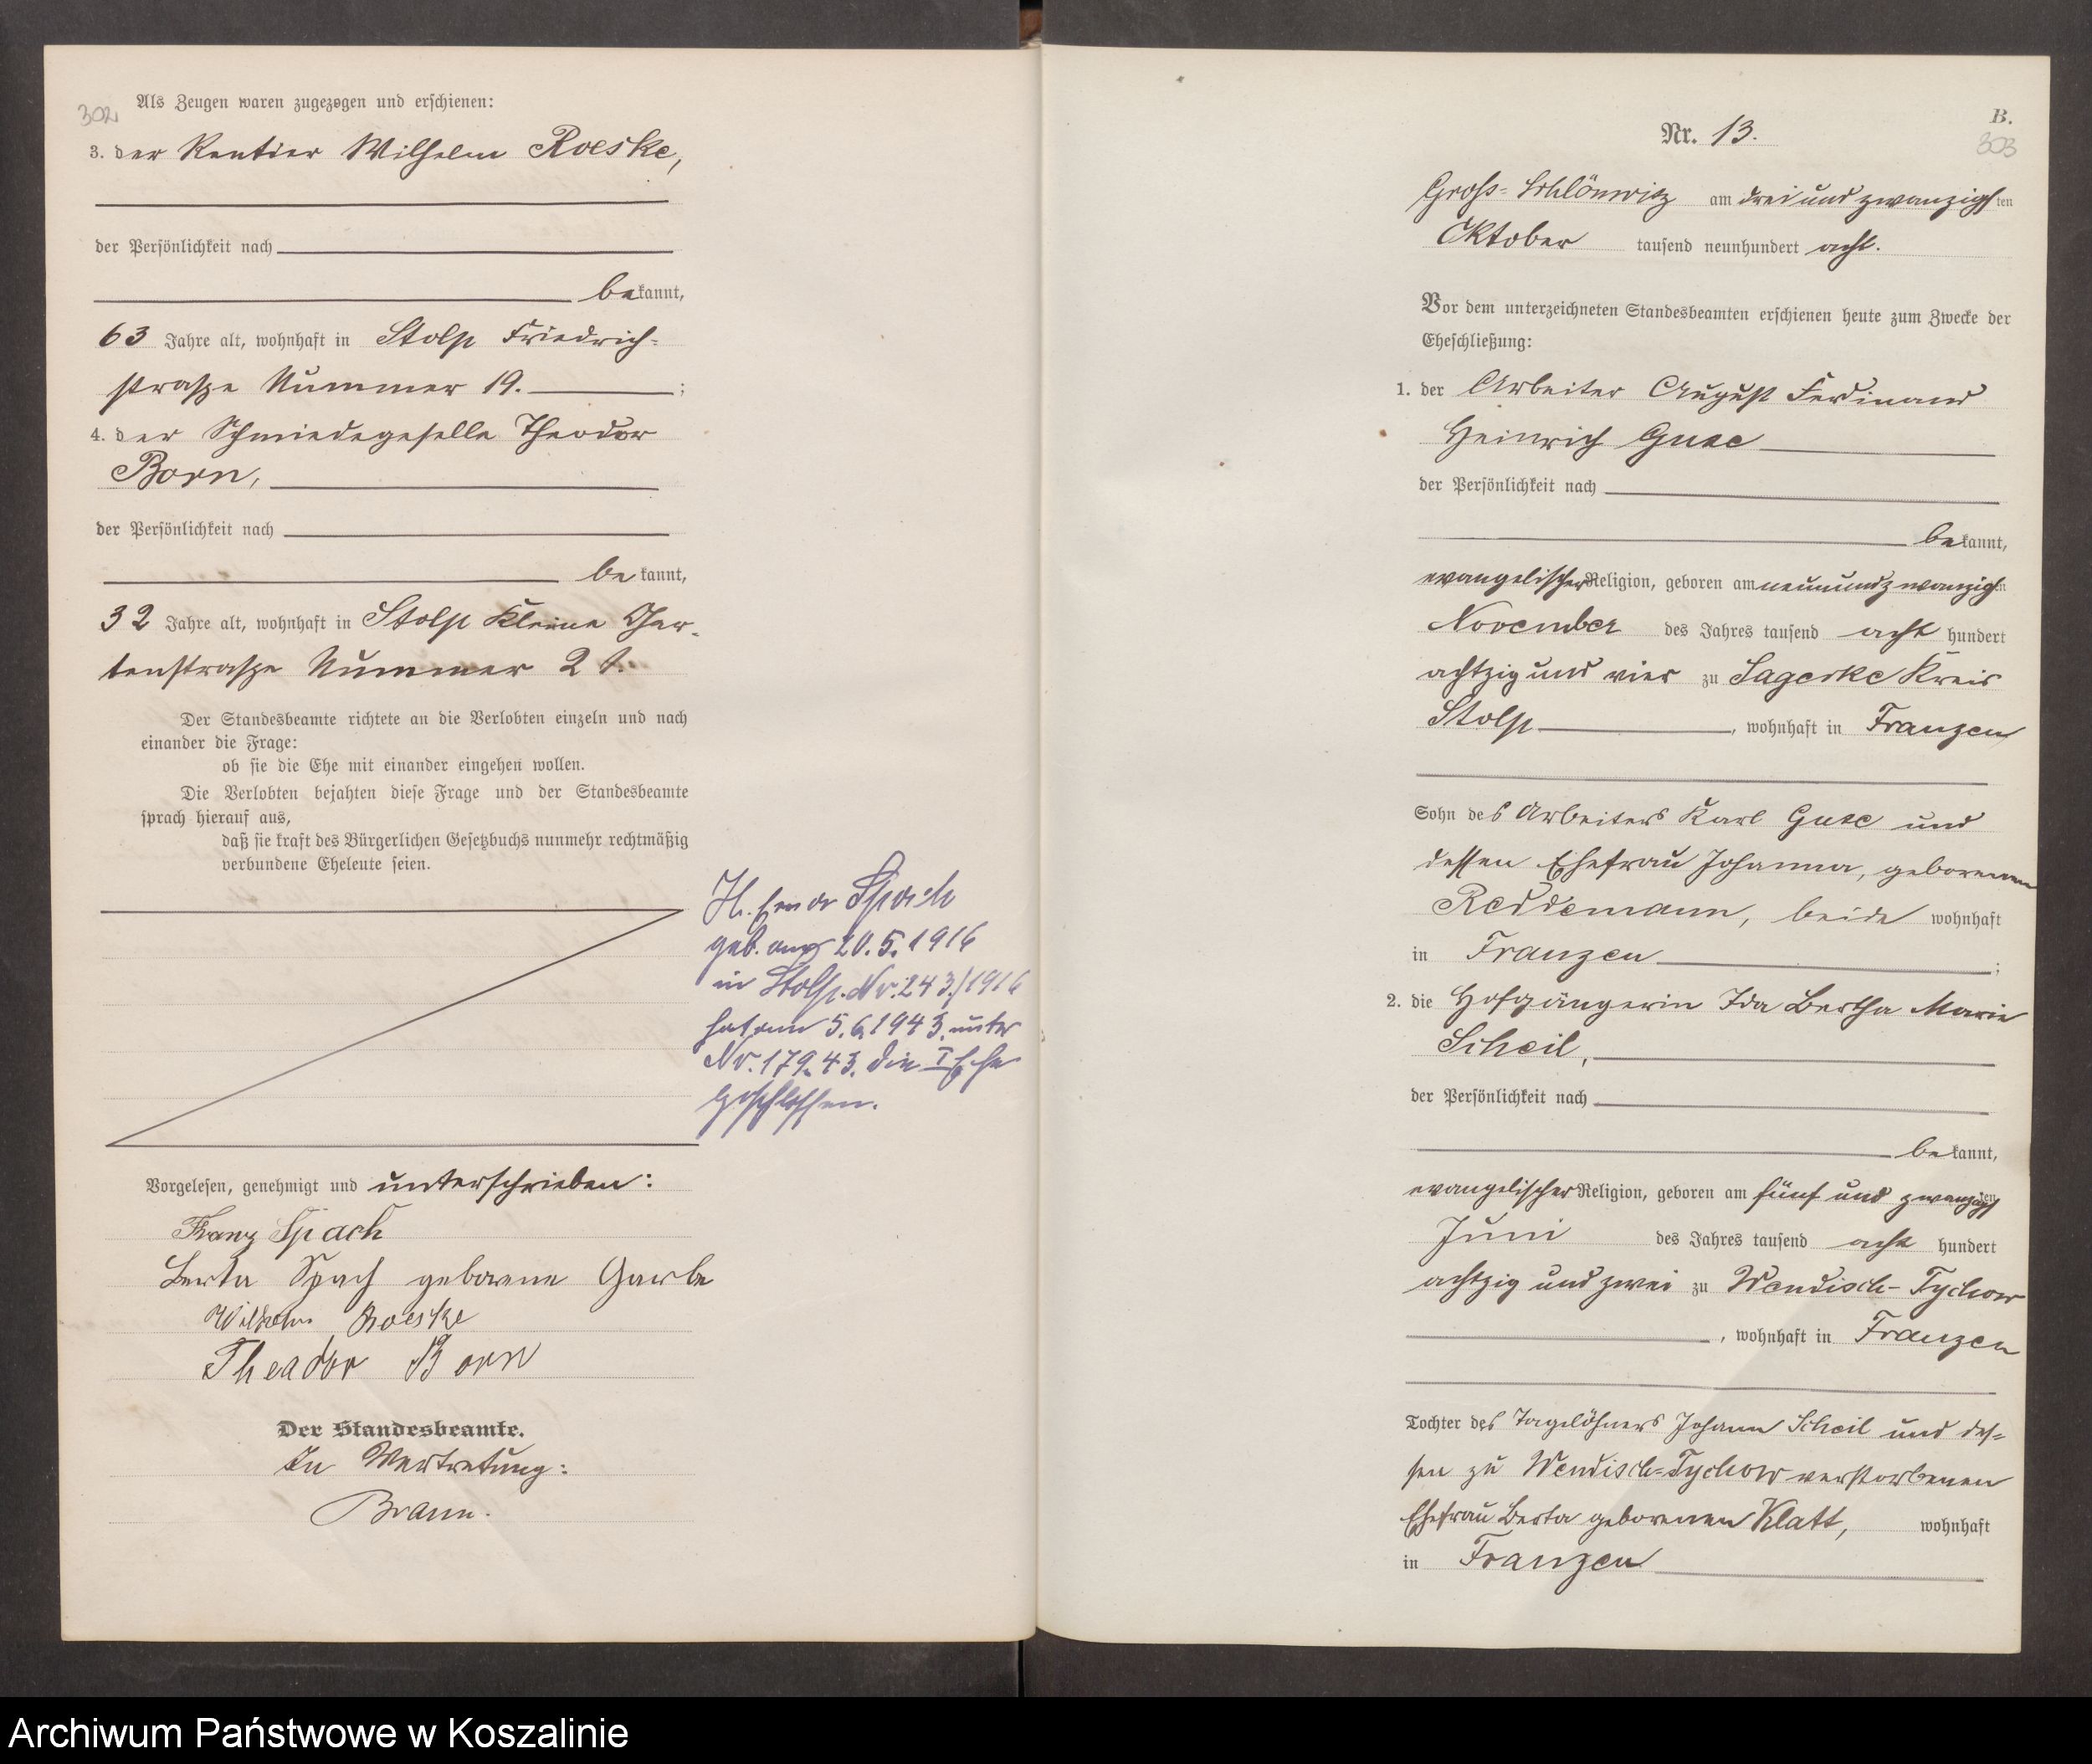 302
Als Zeugen waren zugezogen und erschienen:
3. der Rentier Wilhelm Roeske,
der Persönlichkeit nach
bekannt,
63 Jahre alt, wohnhaft in Stolp Friedrich-
straße Nummer 19. ;
4. der Schmiedegeselle Theodor
Born,
der Persönlichkeit nach
bekannt,
32 Jahre alt, wohnhaft in Stolp Kleine Gar-
tenstraße Nummer 2
Der Standesbeamte richtete an die Verlobten einzeln und nach
einander die Frage:
ob sie die Ehe mit einander eingehen wollen.
Die Verlobten bejahten diese Frage und der Standesbeamte
sprach hierauf aus,
daß sie kraft des Bürgerlichen Gesetzbuchs nunmehr rechtmäßig
verbundene Eheleute seien.
Spach
geb. am 20.5.1916
in Stolp. Nr. 243/1916
hat am 5.6.1943 unter
Nr. 179.43. die I Ehe
geschlossen.
Vorgelesen, genehmigt und unterschrieben:
Franz Spach
Berta Spach geborene Garbe
Wilhelm Roeske
Theador Born
Der Standesbeamte.
In Vertretung:
Braun.
B.
303
Nr. 13.
Groß-Schlönwitz am dreiundzwanzigsten
Oktober tausend neunhundert acht.
Vor dem unterzeichneten Standesbeamten erschienen heute zum Zwecke der
Eheschließung:
1. der Arbeiter August Ferdinand
Heinrich Guse
der Persönlichkeit nach
bekannt,
evangelischer Religion, geboren am neunundzwanzigsten
November des Jahres tausend acht hundert
achtzig und vier zu Sagerke Kreis
Stolp , wohnhaft in Franzen
Sohn des Arbeiters Karl Guse und
dessen Ehefrau Johanna, geborenen
Reddemann, beide wohnhaft
in Franzen ;
2. die Hofgängerin Ida Bertha Marie
Scheil,
der Persönlichkeit nach
bekannt,
evangelischer Religion, geboren am fünf und zwanzigsten
Juni des Jahres tausend acht hundert
achtzig und zwei zu Wendisch-Tychow
, wohnhaft in Franzen
Tochter des Tagelöhners Johann Scheil und des-
sen zu Wendisch-Tychow verstorbenen
Ehefrau Berta geborenen Klatt, wohnhaft
in Franzen
Archiwum Państwowe w Koszalinie